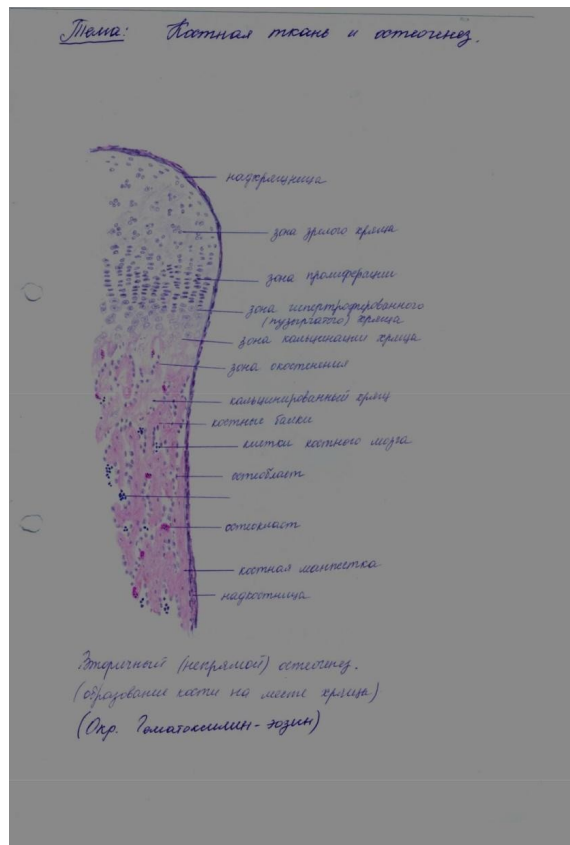 Тема: Костная ткань и остеогенез.
надхрящница
зона зрелого хряща
зона пролиферации
зона гипертрофированного
(пузырчатого) хряща
зона кальцинации хряща
зона окостенения
кальцинированный хрящ
костные балки
клетки костного мозга
остеобласт
остеокласт
костная манжетка
надкостница
Вторичный (непрямой) остеогенез.
(образование кости на месте хряща)
(Окр. Гематоксилин-эозин)